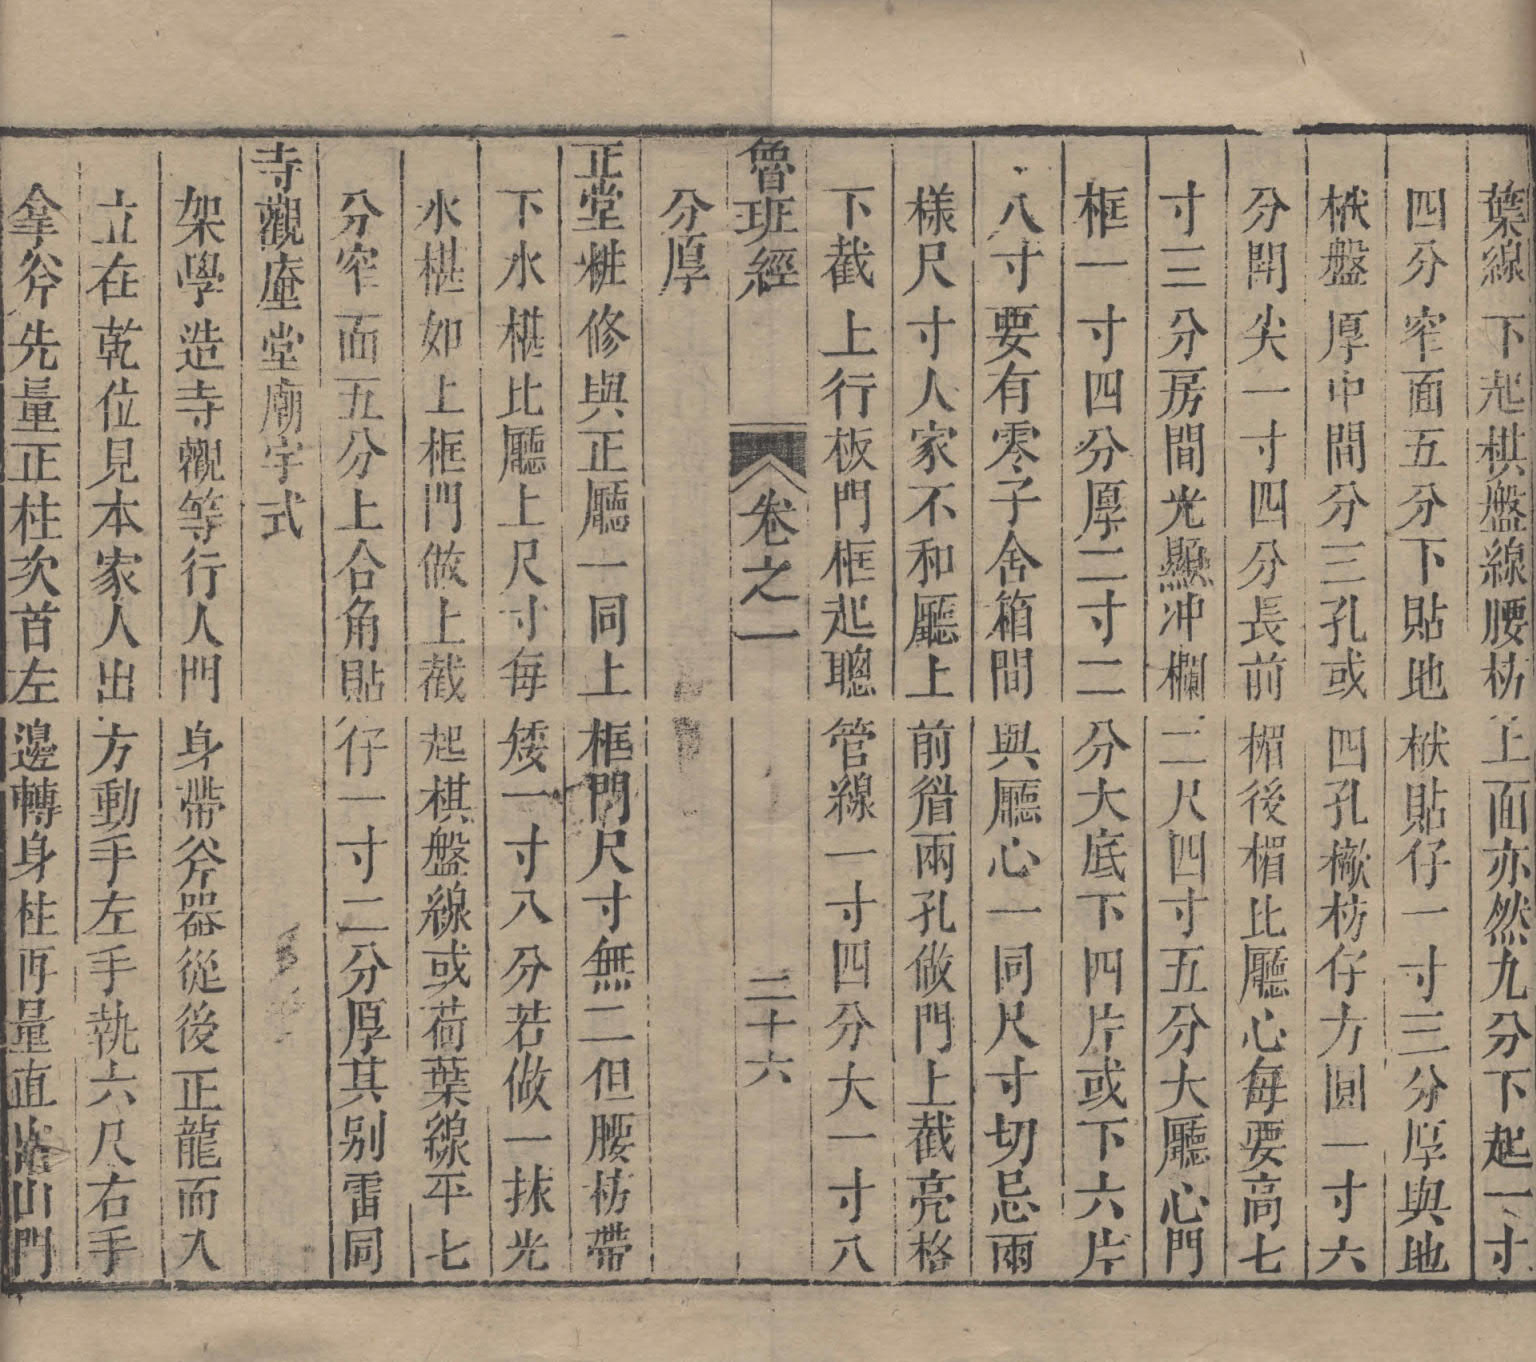 葉線下起棋盤線腰枋上面亦然九分下起一寸
四分窄面五分下貼地栿貼仔一寸三分厚與地
栿盤厚中間分三孔或四孔橔枋仔方圓一寸六
分閗尖一寸四分長前楣後楣比廳心每要高七
寸三分房間光顯冲欄二尺四寸五分大廳心門
框一寸四分厚二寸二分大底下四片或下六片
八寸要有零子舍箱間與廳心一同尺寸切忌兩
樣尺寸人家不和廳上前眉兩孔做門上截亮格
下截上行板門框起聰管線一寸四分大一寸八
魯班經 卷之一 二十六
分厚
正堂粧修與正廳一同上框門尺寸無二但腰枋帶
下水椹比廳上尺寸每矮一寸八分若做一抹光
水椹如上框門做上截起棋盤線或荷葉線平七
分窄面五分上合角貼仔一寸二分厚其别雷同
寺觀庵堂廟宇式
架學造寺觀等行人門身帶斧器從後正龍而入
立在乾位見本家人出方動手左手執六尺右手
拿斧先量正柱次首左邊轉身柱再量直出山門